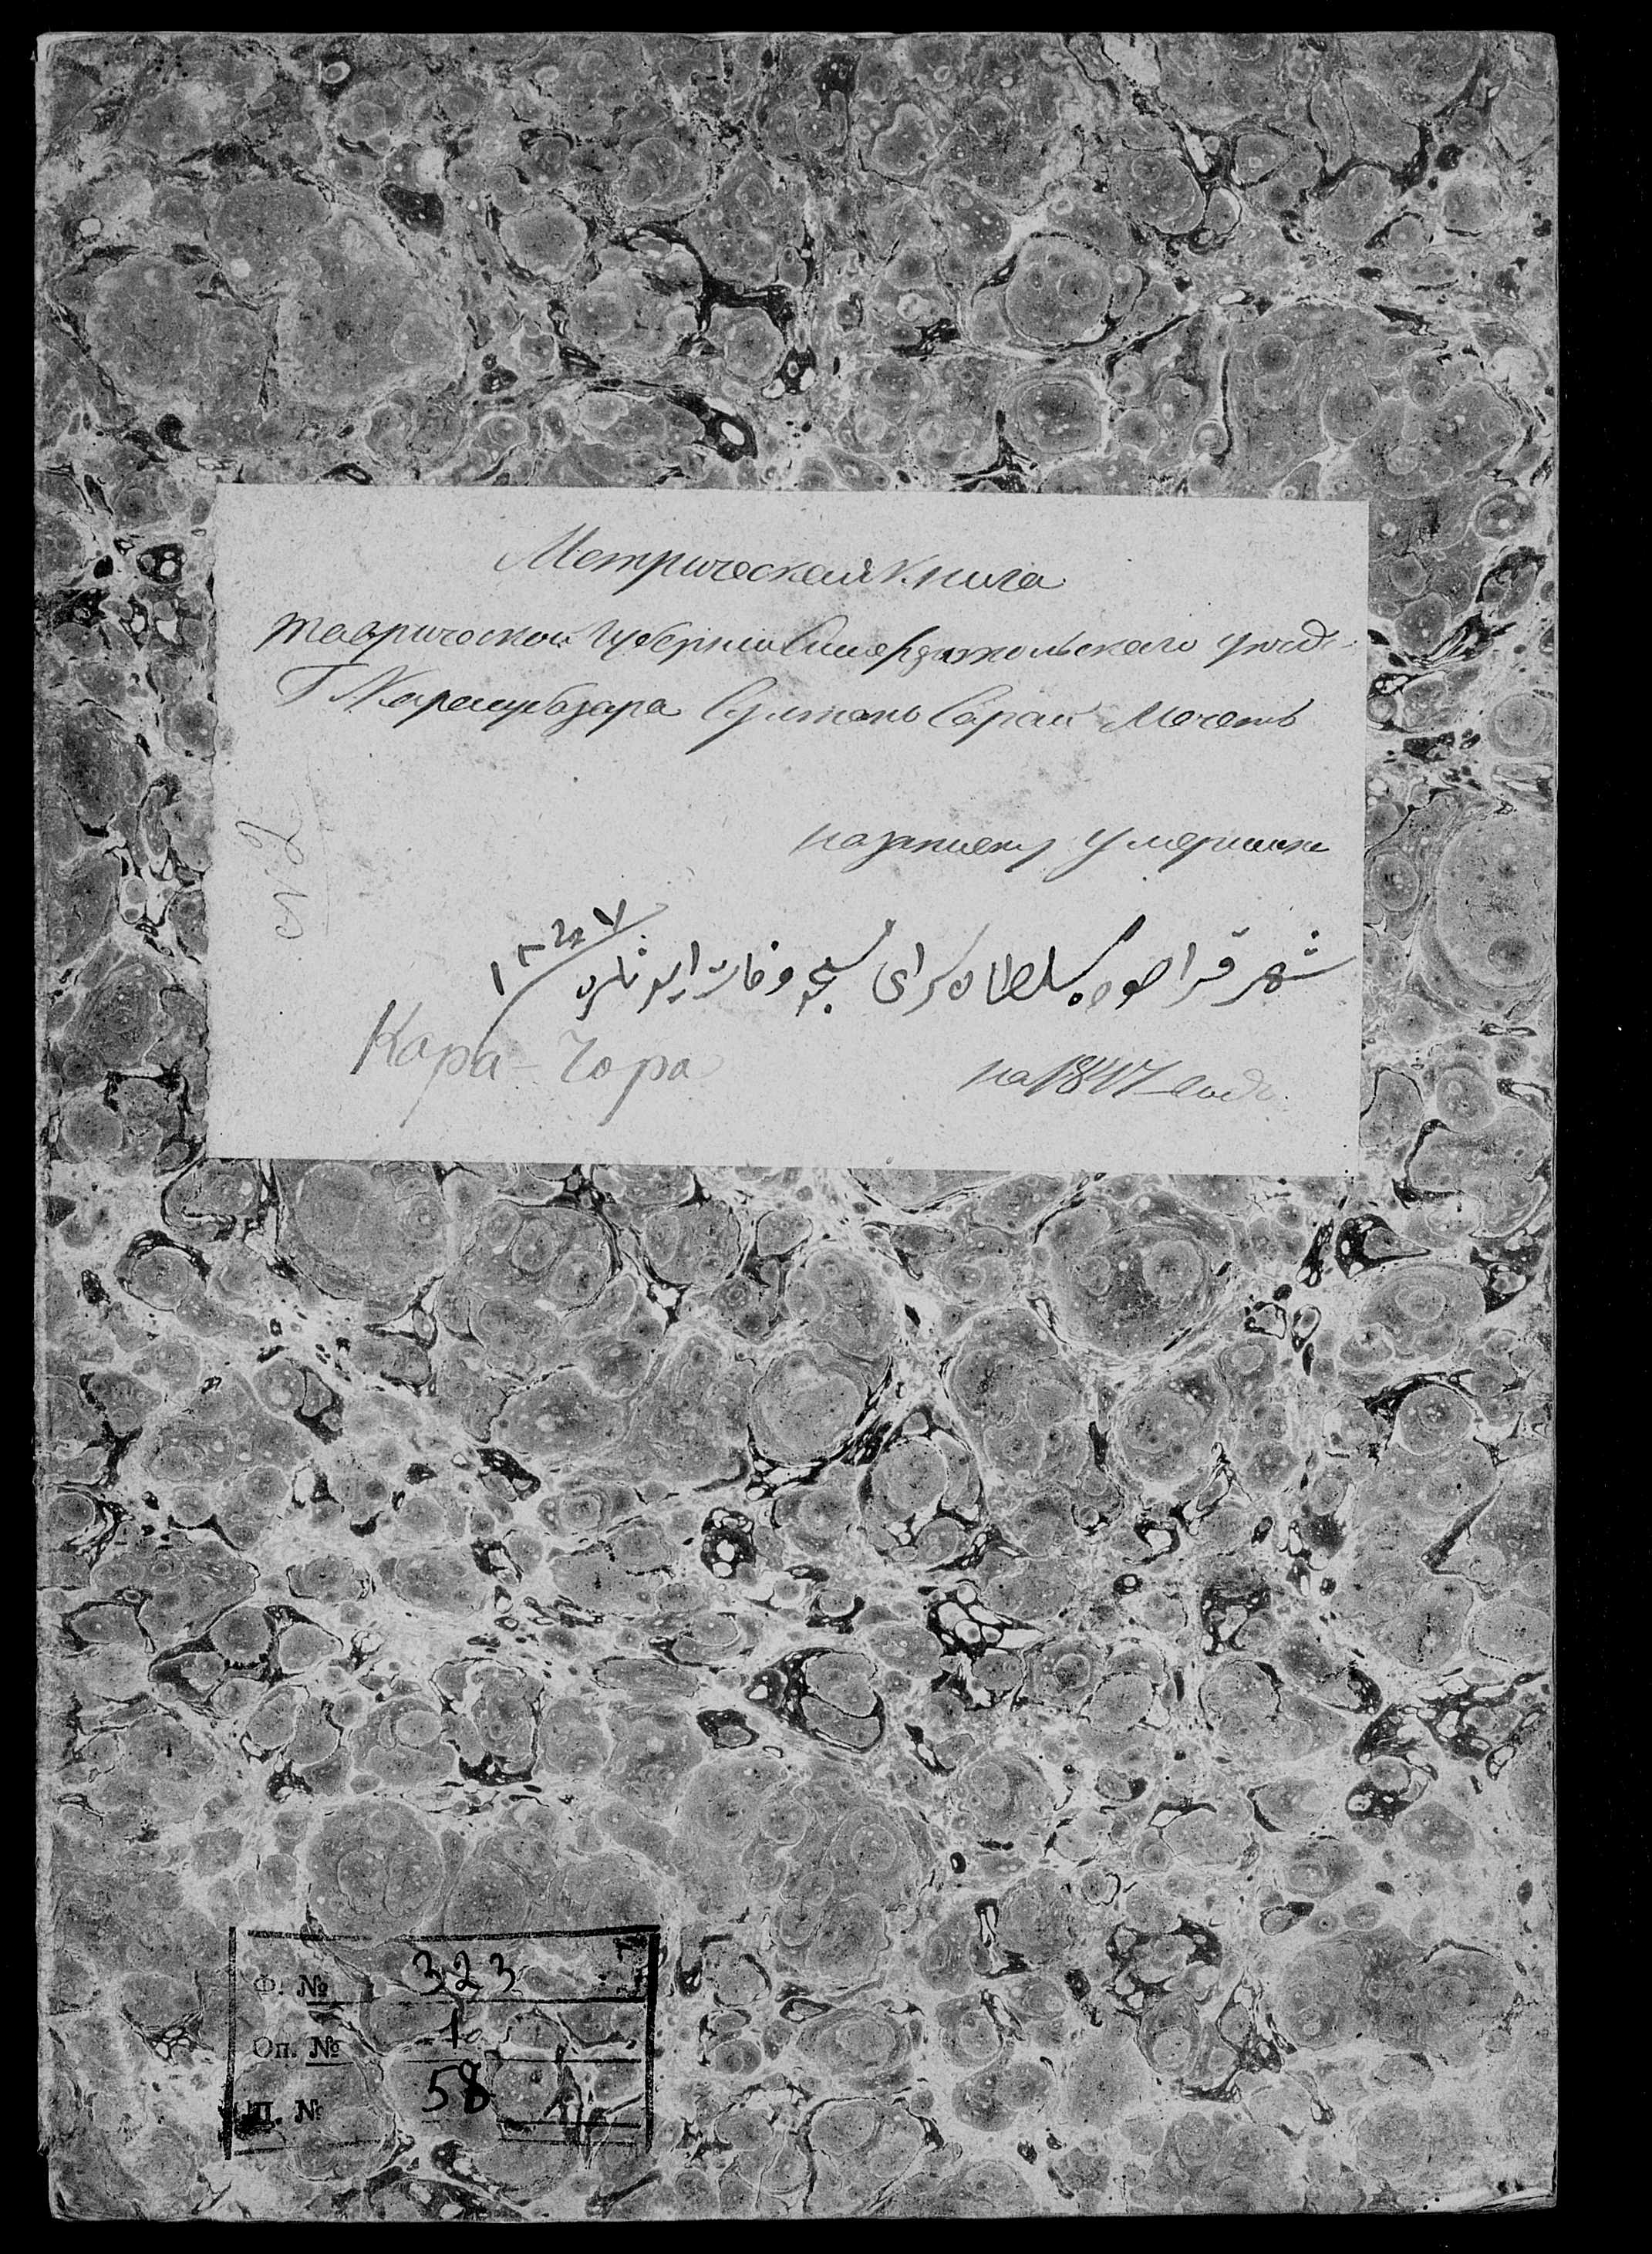 Метрическая книга
таврической губернии Симферопольского уезд
Г Карасубазара Султанъ Сарай Мечеть
на записку умерших
شهر قراصو سلطان سرای وفات
Кара-Чора
на 1847 годъ
Ф. № 323
Оп. № 1
Д. № 58